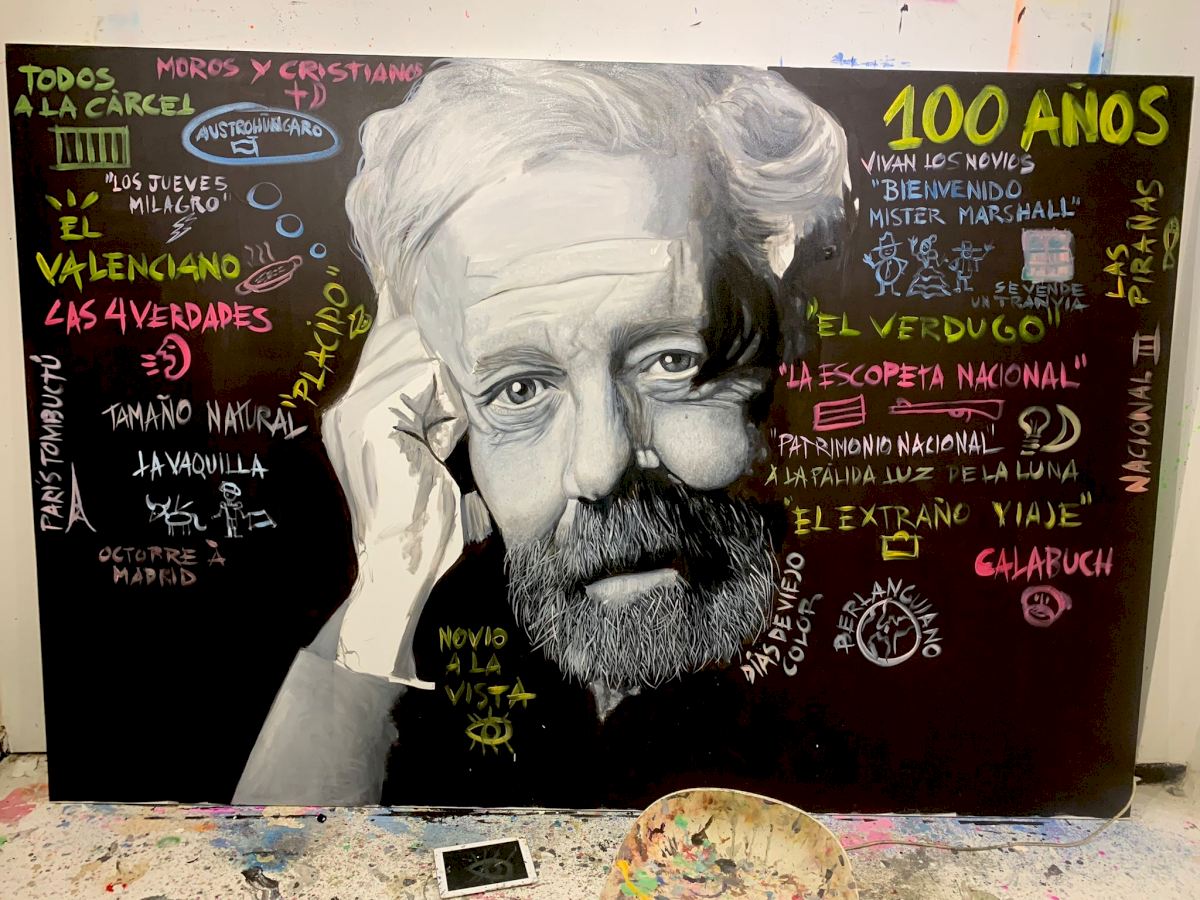 TODOS
A LA CÀRCEL
MOROS Y CRISTIANOS
+D
AUSTROHÚNGARO
"LOS JUEVES
MILAGRO"
EL
VALENCIANO
LAS 4 VERDADES
"PLACIDO"
PARÍS TOMBUCTÚ
TAMAÑO NATURAL
LA VAQUILLA
OCTOPRE À
MADRID
NOVIO
A LA
VISTA
100 AÑOS
VIVAN LOS NOVIOS
"BIENVENIDO
MISTER MARSHALL"
SE VENDE
UN TRANVIA
LAS
PIRAÑAS
"EL VERDUGO"
"LA ESCOPETA NACIONAL"
NACIONAL III
"PATRIMONIO NACIONAL"
A LA PÁLIDA LUZ DE LA LUNA
"EL EXTRAÑO VIAJE"
CALABUCH
DÍAS DE VIEJO
COLOR
BERLANGUIANO